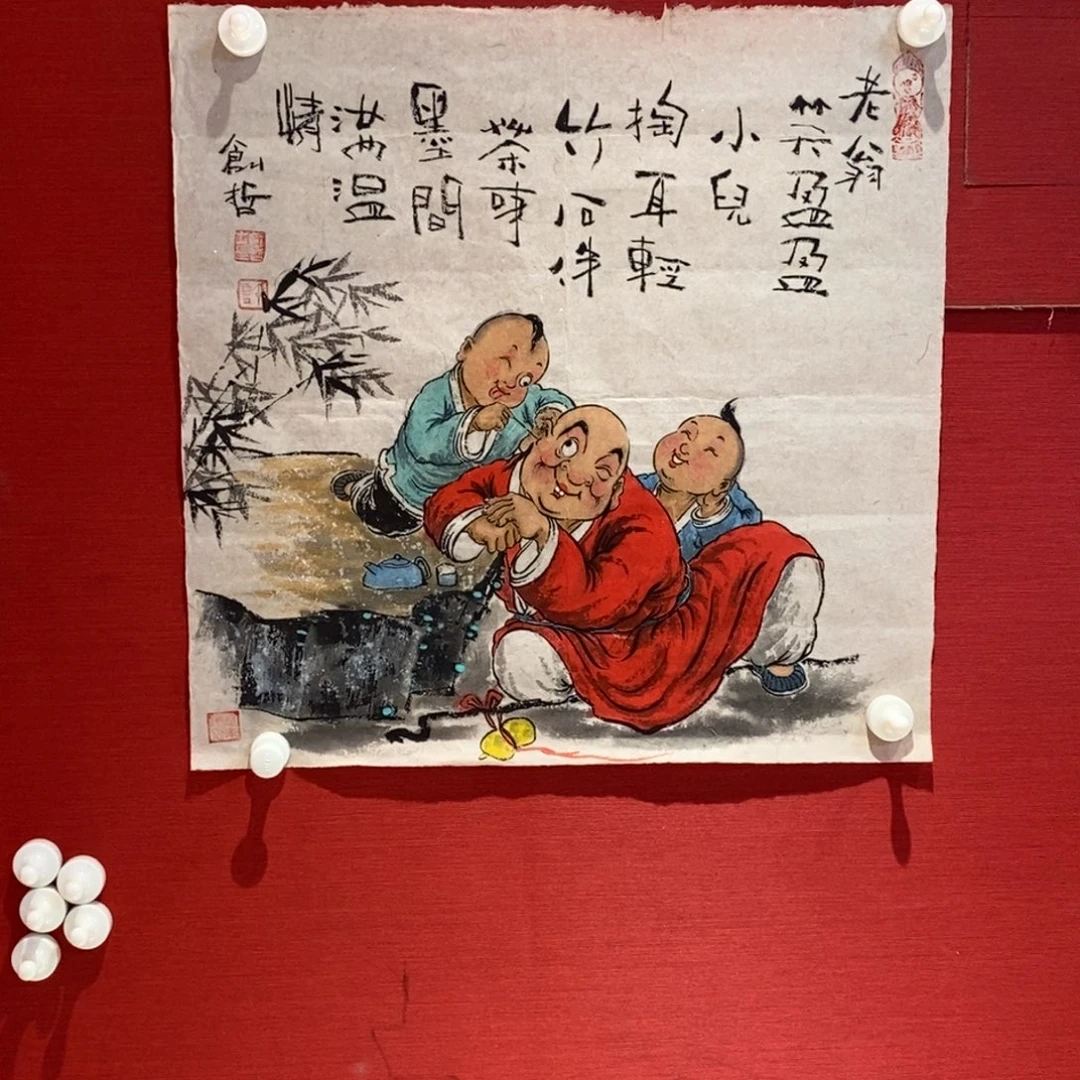 老翁
笑盈盈
小兒
掏耳輕
竹石伴
茶味
墨間
滿溫
情
創哲